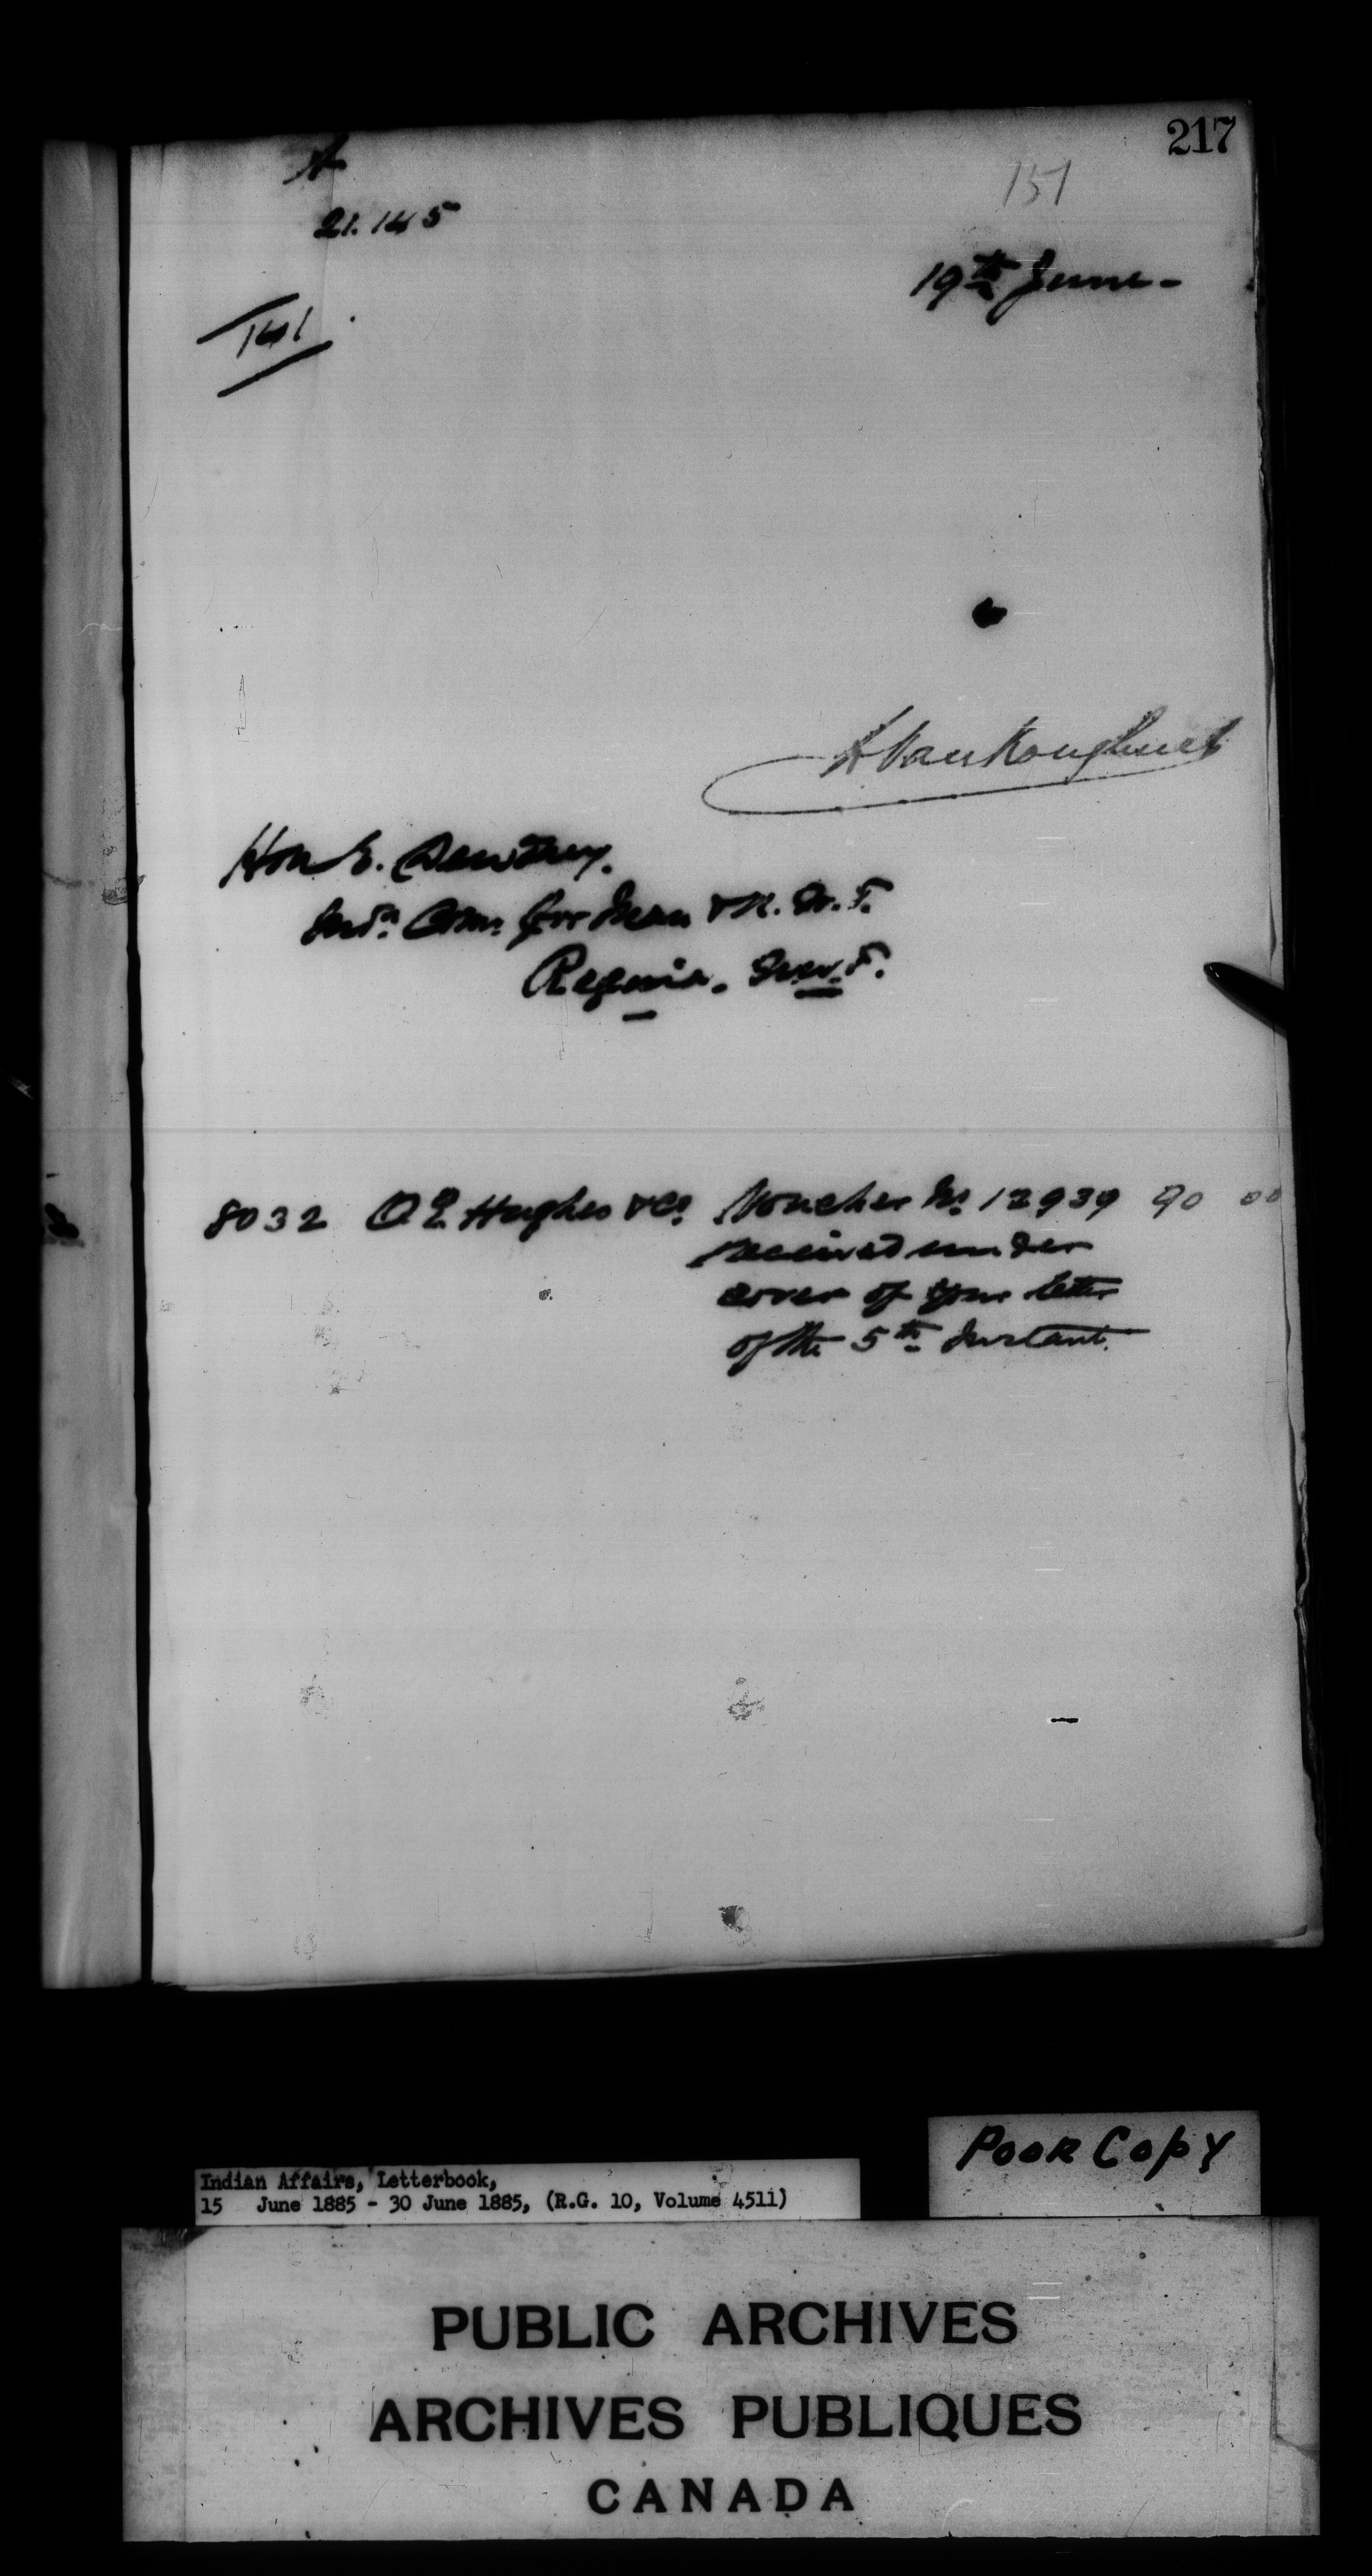 217
151
21.145
19th June -
141
L VanKoughnet
Hon E. Dewdney.
Indn. Comr. for Man & N. W. T.
Regina. N.W.T.
8032 O E Hughes & Co Voucher No 12939 90 00
received under
cover of your letter
of the 5th Instant.
Poor Copy
Indian Affairs, Letterbook,
15 June 1885 - 30 June 1885, (R.G. 10, Volume 4511)
PUBLIC ARCHIVES
ARCHIVES PUBLIQUES
CANADA